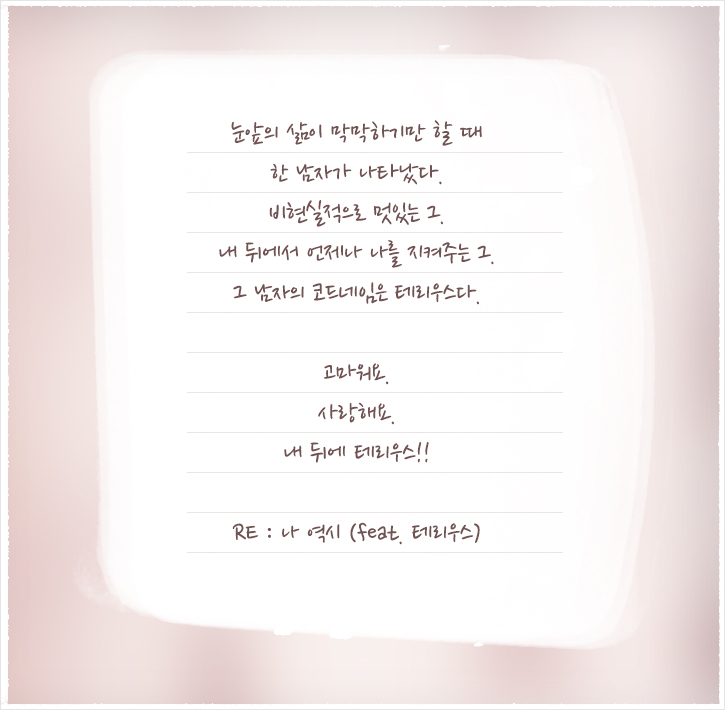 눈앞의 삶이 막막하기만 할 때
한 남자가 나타났다.
비현실적으로 멋있는 그.
내 뒤에서 언제나 나를 지켜주는 그.
그 남자의 코드네임은 테리우스다.
고마워요.
사랑해요.
내 뒤에 테리우스!!
RE : 나 역시 (feat. 테리우스)